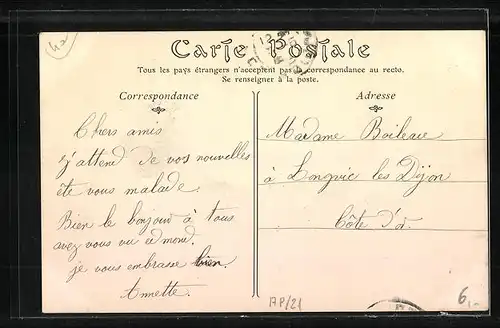 4a
Carte Postale
Tous les pays étrangers n'acceptent pas la correspondance au recto.
Se renseigner à la poste.
Correspondance
Chers amis
j'attend de vos nouvelles
ete vous malade.
Bien le bonjour à tous
avez vous vu edmond.
je vous embrasse bien.
Annette.
Adresse
Madame Boileau
à Longvic les Dijon
Côte d'or.
AP/21
6